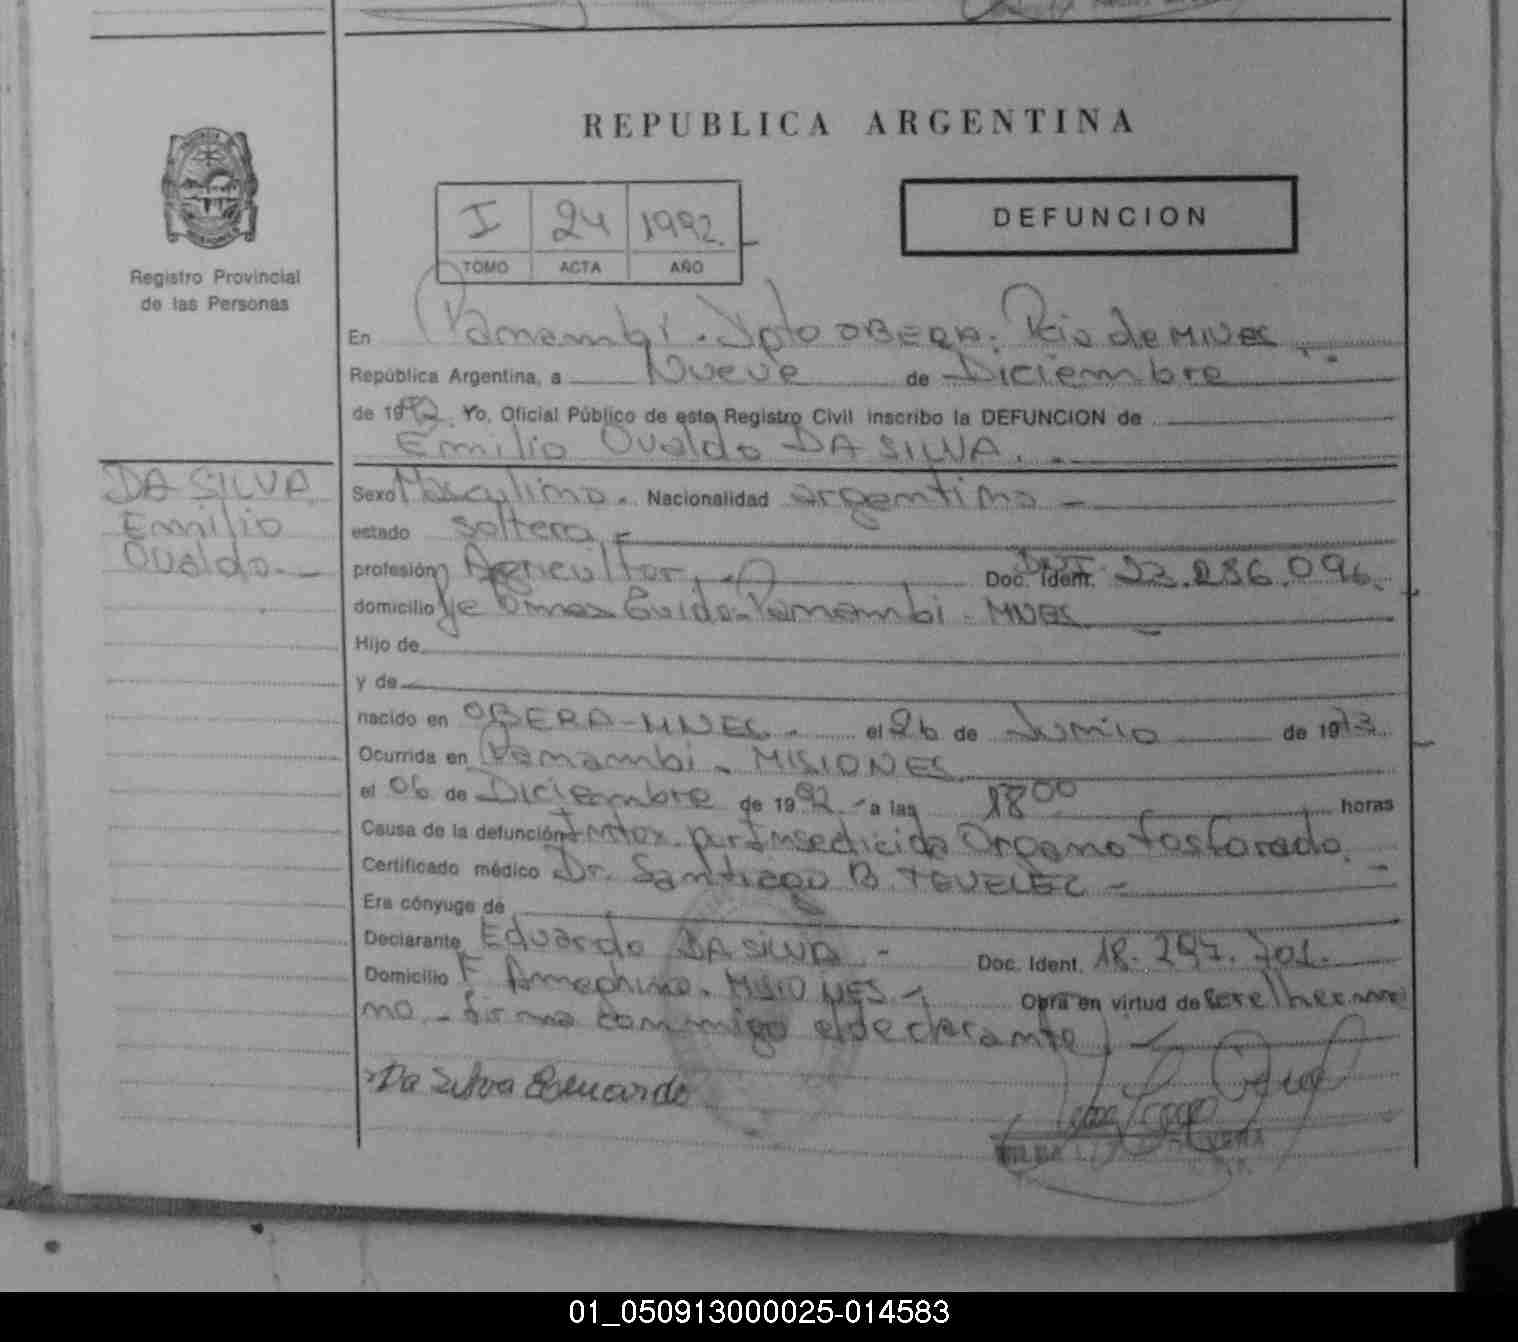 REPUBLICA ARGENTINA
Registro Provincial
de las Personas
I 24 1992.
TOMO ACTA AÑO
DEFUNCION
En Panambi. Dpto OBERA. Pcia de MNES
República Argentina, a Nueve de Diciembre
de 1992. Yo, Oficial Público de este Registro Civil inscribo la DEFUNCION de
Emilio Ovaldo DA SILVA.
DA SILVA
Emilio
Ovaldo.
Sexo Masculino. Nacionalidad argentina
estado soltero
profesión Agricultor Doc. Ident. DNI 23.286.096.
domicilio Guido-Panambi - MNES
Hijo de
y de
nacido en OBERA-MNES. el 26 de Junio de 1973.
Ocurrida en Panambi - MISIONES
el 06 de Diciembre de 1992 a las 18 00 horas
Causa de la defunción Intox. por Insecticida Organo fosforado.
Certificado médico Dr. Santiago B. TEVELEZ
Era cónyuge de
Declarante Eduardo DA SILVA - Doc. Ident. 18.297.701.
Domicilio F. Ameghino. MISIONES Obra en virtud de ser el herma
no. - firma conmigo el declarante
Da Silva Eduardo
01_050913000025-014583